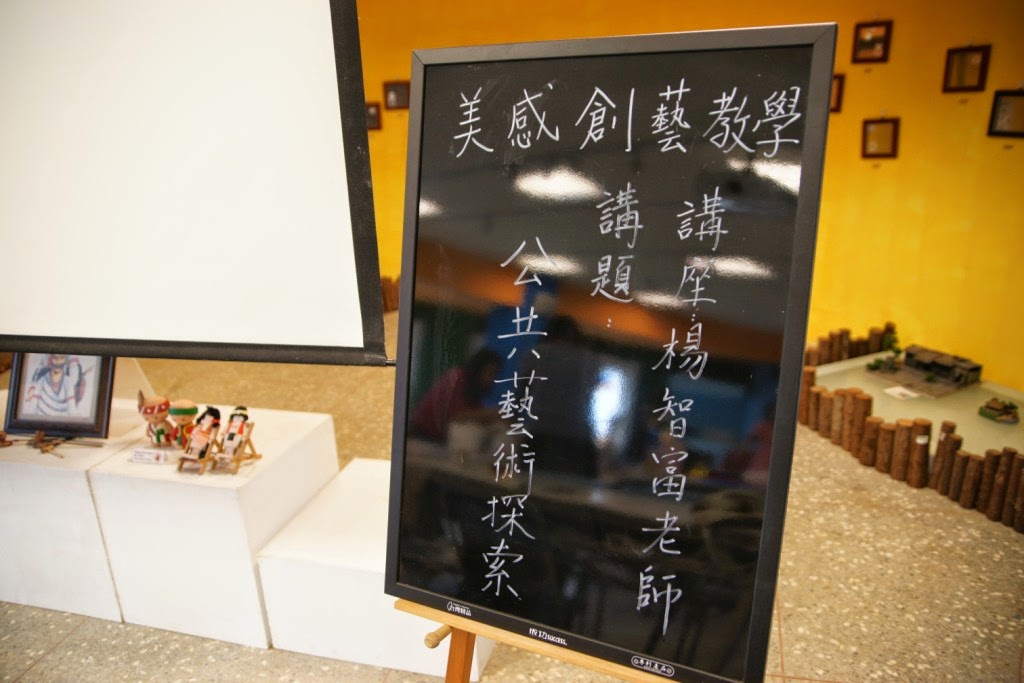 美感創藝教學
講座:楊智富老師
講題:
公共藝術探索